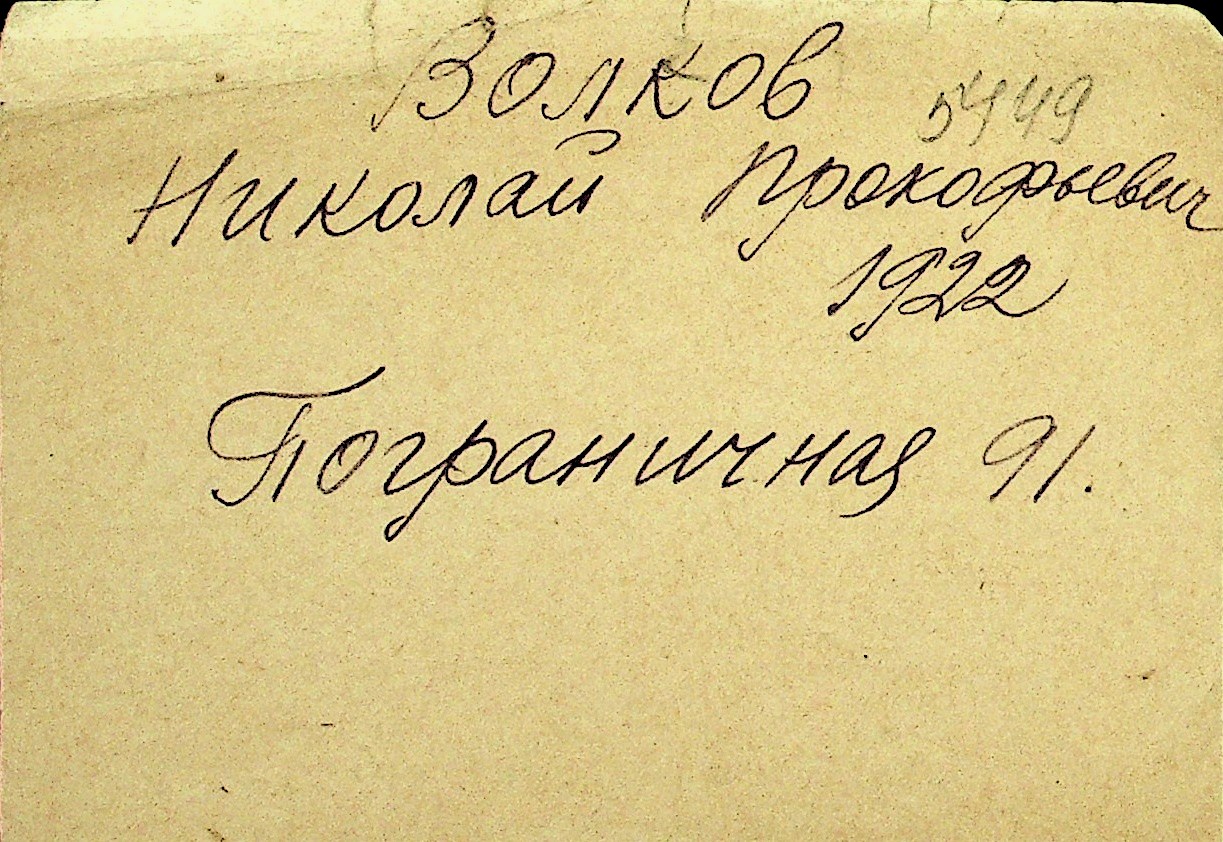 Волков
5449
Николай Прокофьевич
1922
Пограничная 91.